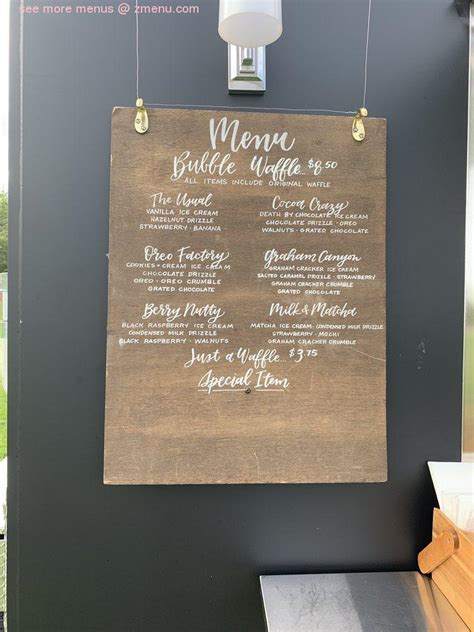 see more menus @ zmenu.com
Menu
Bubble Waffle.. $8.50
ALL ITEMS INCLUDE ORIGINAL WAFFLE
The Usual
VANILLA ICE CREAM
HAZELNUT DRIZZLE
STRAWBERRY · BANANA
Cocoa Crazy
DEATH BY CHOCOLATE ICE CREAM
CHOCOLATE DRIZZLE · OREO
WALNUTS · GRATED CHOCOLATE
Oreo Factory
COOKIES + CREAM ICE CREAM
CHOCOLATE DRIZZLE
OREO · OREO CRUMBLE
GRATED CHOCOLATE
Graham Canyon
GRAHAM CRACKER ICE CREAM
SALTED CARAMEL DRIZZLE · STRAWBERRY
GRAHAM CRACKER CRUMBLE
GRATED CHOCOLATE
Berry Nutty
BLACK RASPBERRY ICE CREAM
CONDENSED MILK DRIZZLE
BLACK RASPBERRY · WALNUTS
Milk & Matcha
MATCHA ICE CREAM · CONDENSED MILK DRIZZLE
STRAWBERRY · MOCHI
GRAHAM CRACKER CRUMBLE
Just a Waffle.. $3.75
Special Item